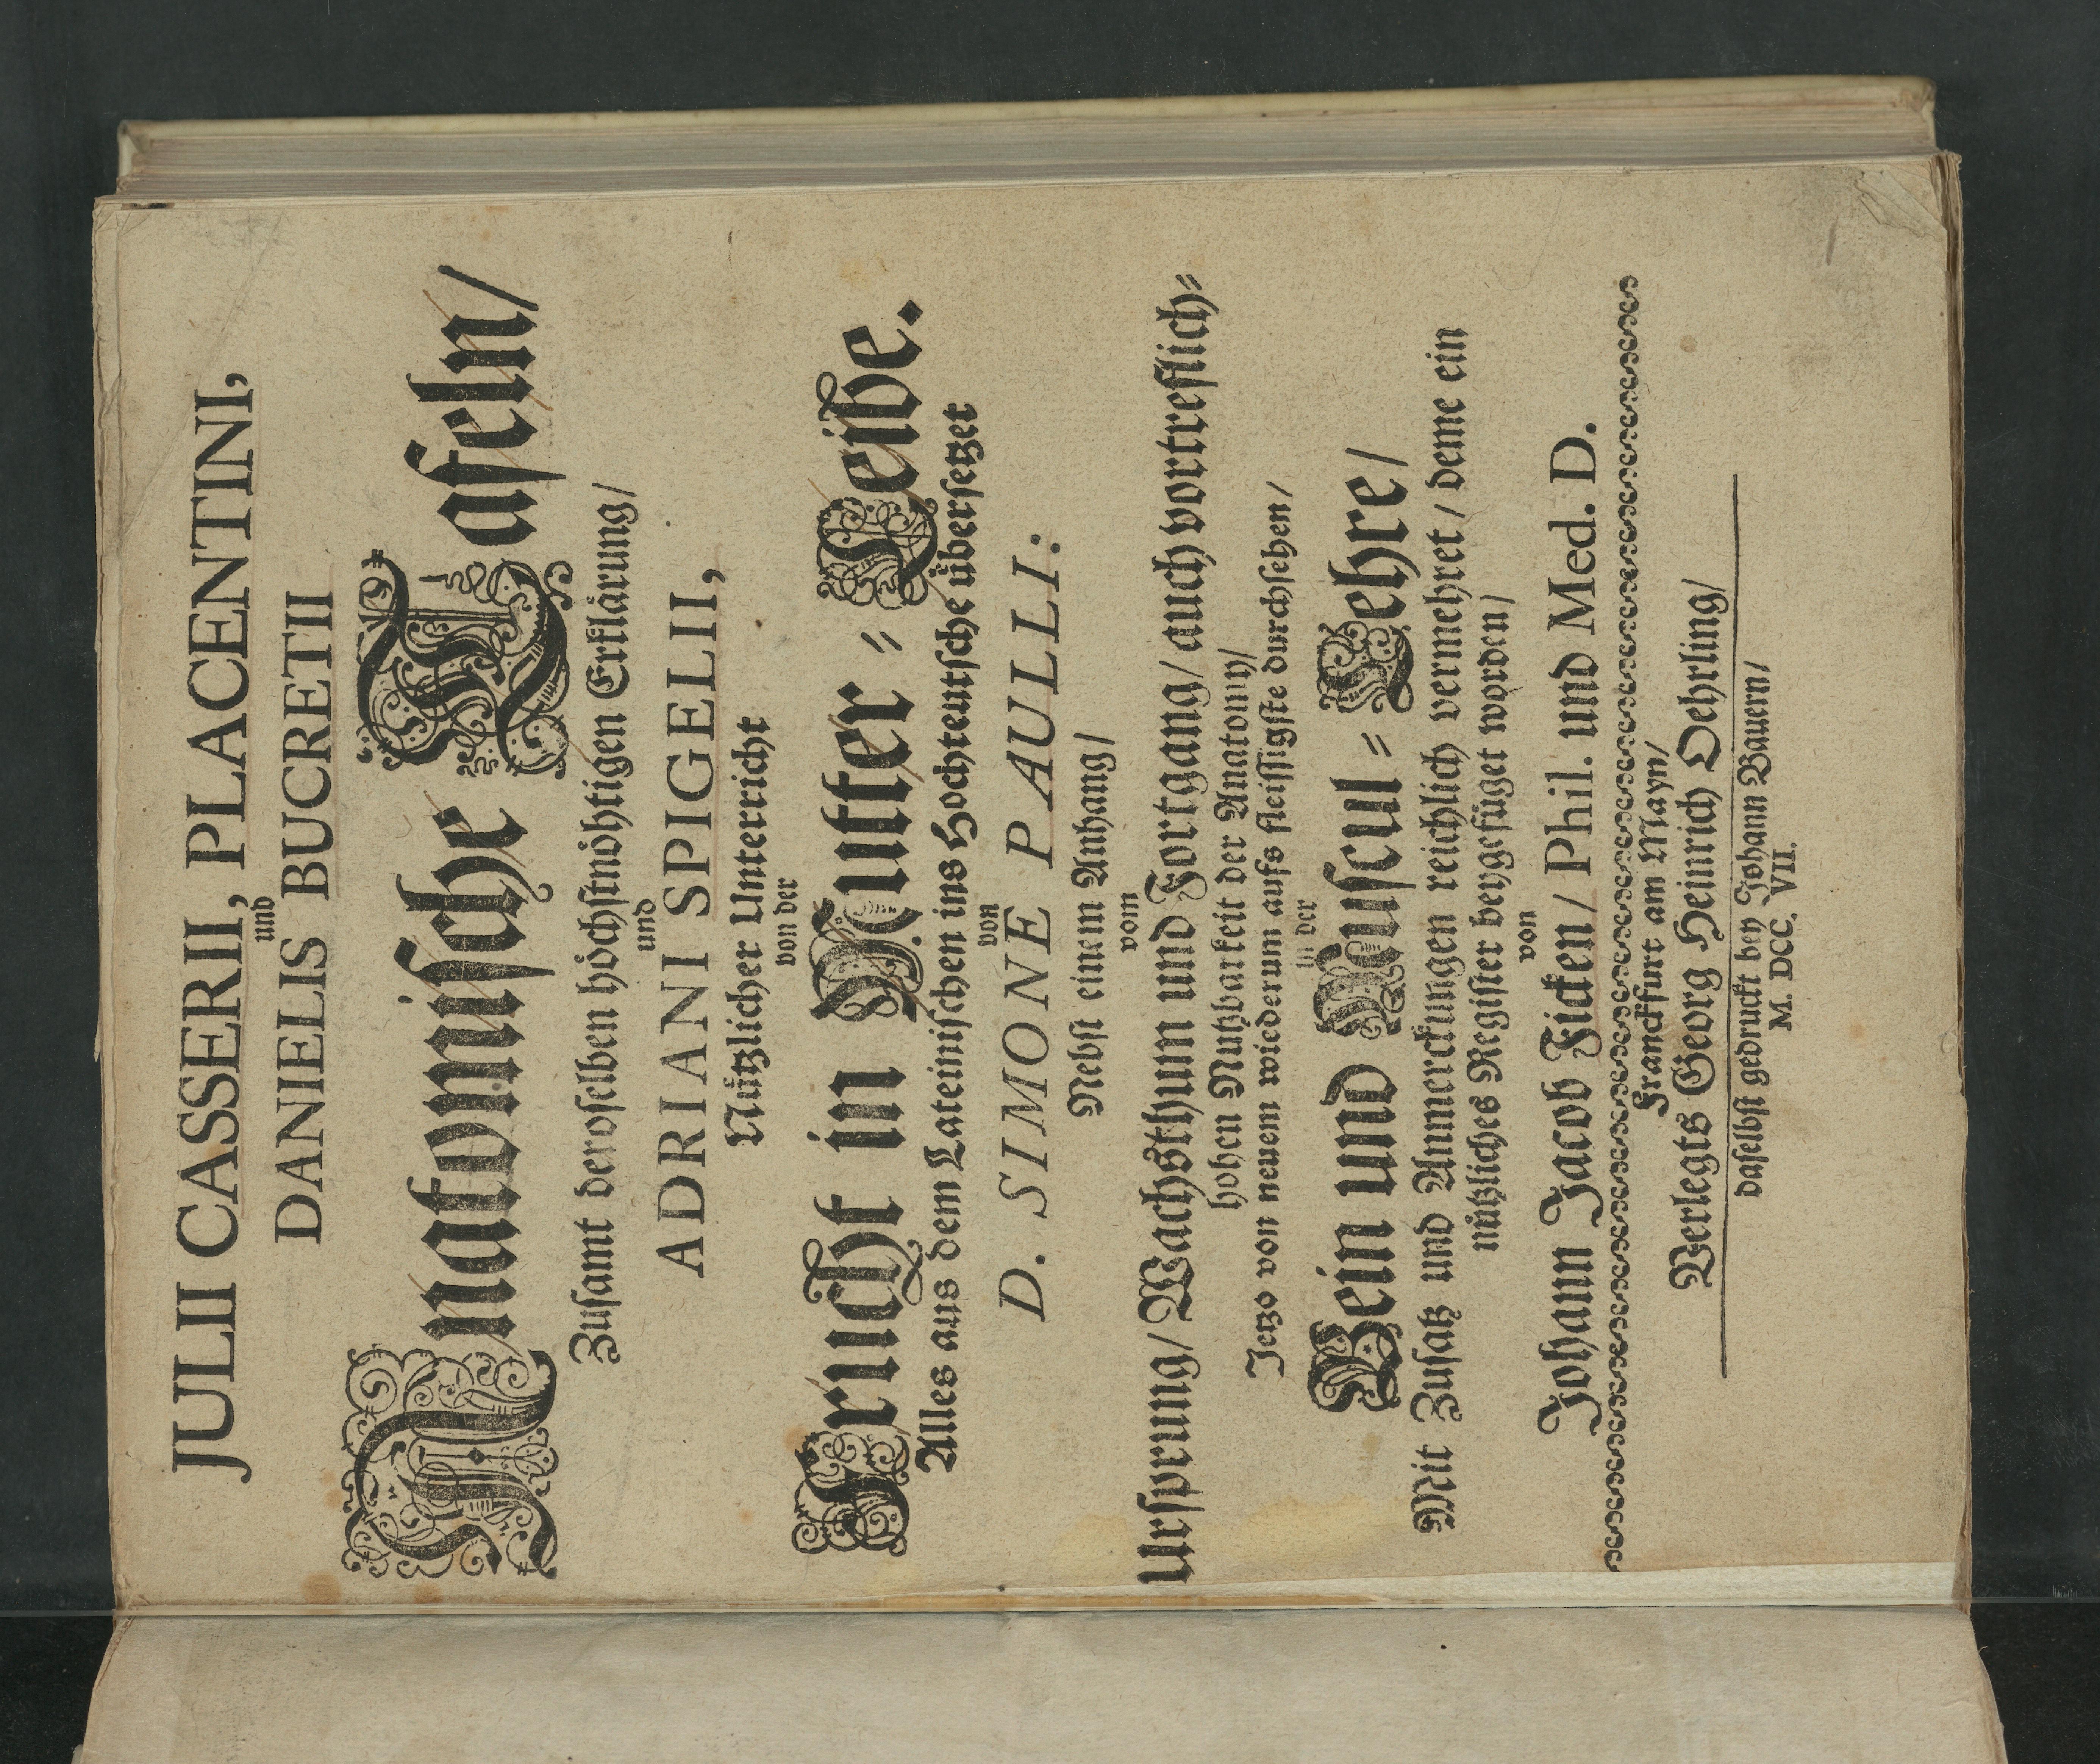 JULII CASSERII, PLACENTINI,
und
DANIELIS BUCRETII
Anatomische Tafeln/
Zusamt deroselben höchstnöhtigen Erklärung/
und
ADRIANI SPIGELII,
Nützlicher Unterricht
von der
Frucht in Mutter⸗Leibe.
Alles aus dem Lateinischen ins Hochteutsche übersetzet
von
D. SIMONE PAULLI:
Nebst einem Anhang/
vom
Ursprung/ Wachsthum und Fortgang/ auch vortreflich⸗
hohen Nutzbarkeit der Anatomy/
Jetzo von neuem wiederum aufs fleissigste durchsehen/
in der
Bein und Muscul⸗Lehre/
Mit Zusatz und Anmerckungen reichlich vermehret/ deme ein
nützliches Register beygefüget worden/
von
Johann Jacob Ficken/ Phil. und Med. D.
Franckfurt am Mayn/
Verlegts Georg Heinrich Oehrling/
daselbst gedruckt bey Johann Bauern/
M. DCC. VII.